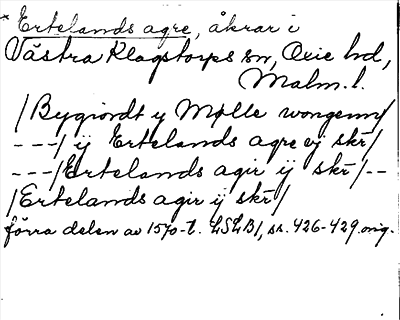 * Ertelands agre, åkrar i
Västra Klagstorps sn, Oxie hd,
Malm. l.
/Bygiordt y Mølle wongenn/
---/ ij Ertelands agre ej skr/
---/Ertelands agir ij skr/--
/Ertelands agir ij skr/
förra delen av 1570-t. LSLB1, sr. 426-429 orig.